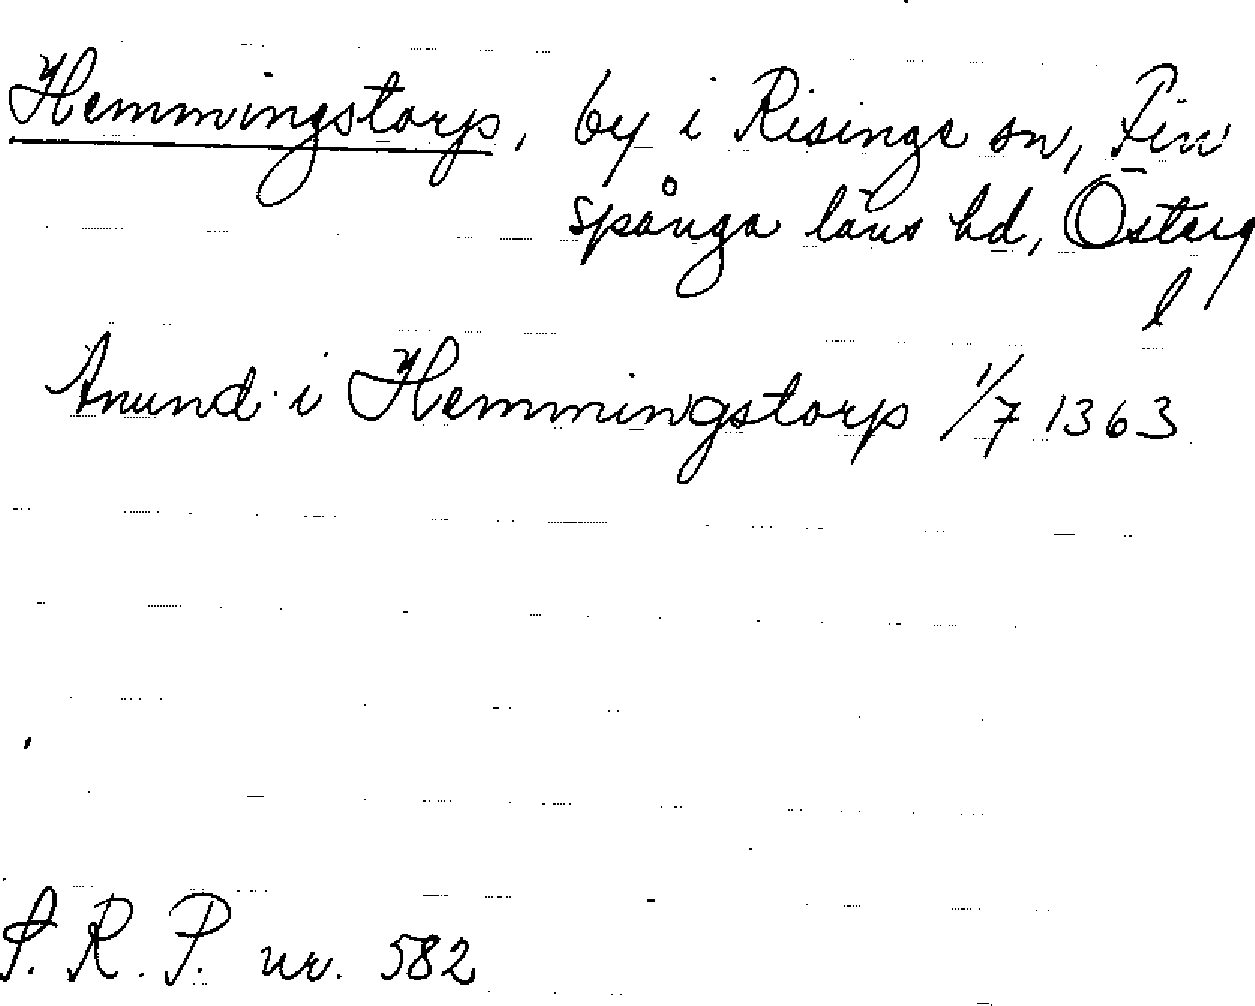 Hemmingstorp, by i Risinge sn, Fin
spånga läns hd, Österg
l
Anund i Hemmingstorp 1/7 1363
S.R.P. nr. 582